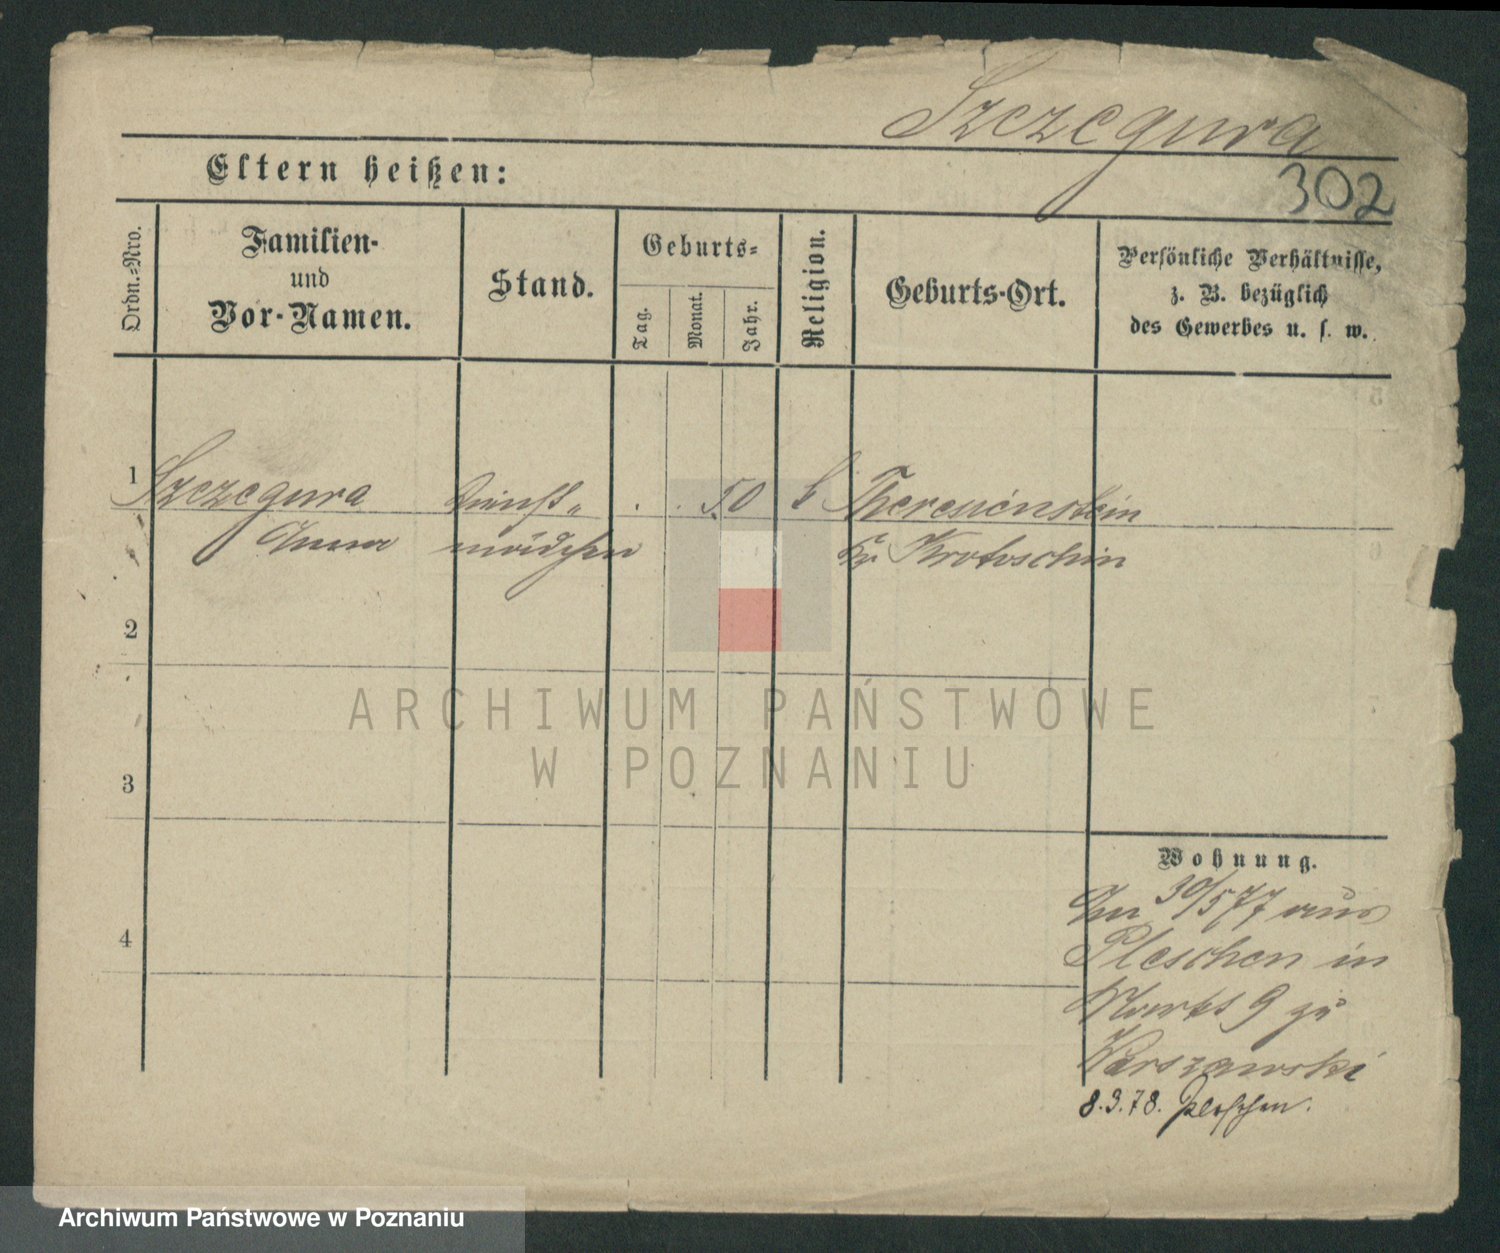 Szczegura
Eltern heißen:
302
Ordn.-Nro.
Familien-
und
Vor-Namen.
Stand.
Geburts-
Tag.
Monat.
Jahr.
Religion.
Geburts-Ort.
Persönliche Verhältnisse,
z. B. bezüglich
des Gewerbes u. s. w.
1
Szczegura
Anna
Dienst-
mädchen
. . 50
k
Theresienstein
Kr Krotoschin
2
3
4
Wohnung.
Am 30/5 77 aus
Pleschen in
Markt 9 zu
Warszawski
8.3.78. Pleschen.
ARCHIWUM PAŃSTWOWE
W POZNANIU
Archiwum Państwowe w Poznaniu